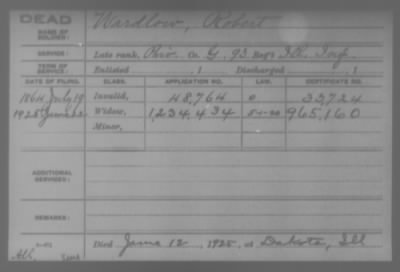 DEAD
NAME OF SOLDIER: Wardlow, Robert
SERVICE: Late rank, Priv. Co. G, 93 Reg't Ill. Inf.
TERM OF SERVICE: Enlisted , 1 Discharged , 1
DATE OF FILING. CLASS. APPLICATION NO. LAW. CERTIFICATE NO.
1864 July 19 Invalid, 48,764 33,724
1925 June 22 Widow, 1,234,434 5-1-20 965,160
Minor,
ADDITIONAL SERVICES:
REMARKS:
Died June 12, 1925, at Dakota, Ill